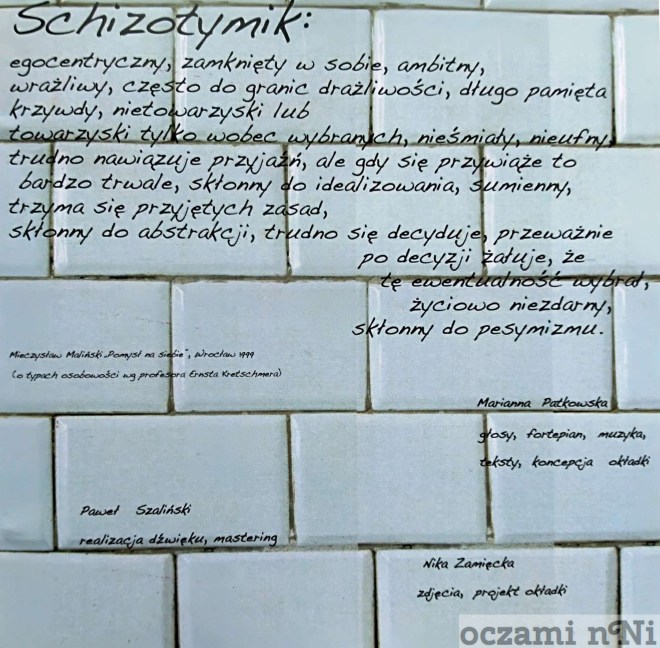 Schizotymik:
egocentryczny, zamknięty w sobie, ambitny,
wrażliwy, często do granic drażliwości, długo pamięta
krzywdy, nietowarzyski lub
towarzyski tylko wobec wybranych, nieśmiały, nieufny,
trudno nawiązuje przyjaźń, ale gdy się przywiąże to
bardzo trwale, skłonny do idealizowania, sumienny,
trzyma się przyjętych zasad,
skłonny do abstrakcji, trudno się decyduje, przeważnie
po decyzji żałuje, że
tę ewentualność wybrał,
życiowo niezdarny,
skłonny do pesymizmu.
Mieczysław Maliński „Pomysł na siebie", Wrocław 1999
(o typach osobowości wg profesora Ernsta Kretschmera)
Marianna Patkowska
głosy, fortepian, muzyka,
teksty, koncepcja okładki
Paweł Szaliński
realizacja dźwięku, mastering
Nika Zamięcka
zdjęcia, projekt okładki
oczami nNi